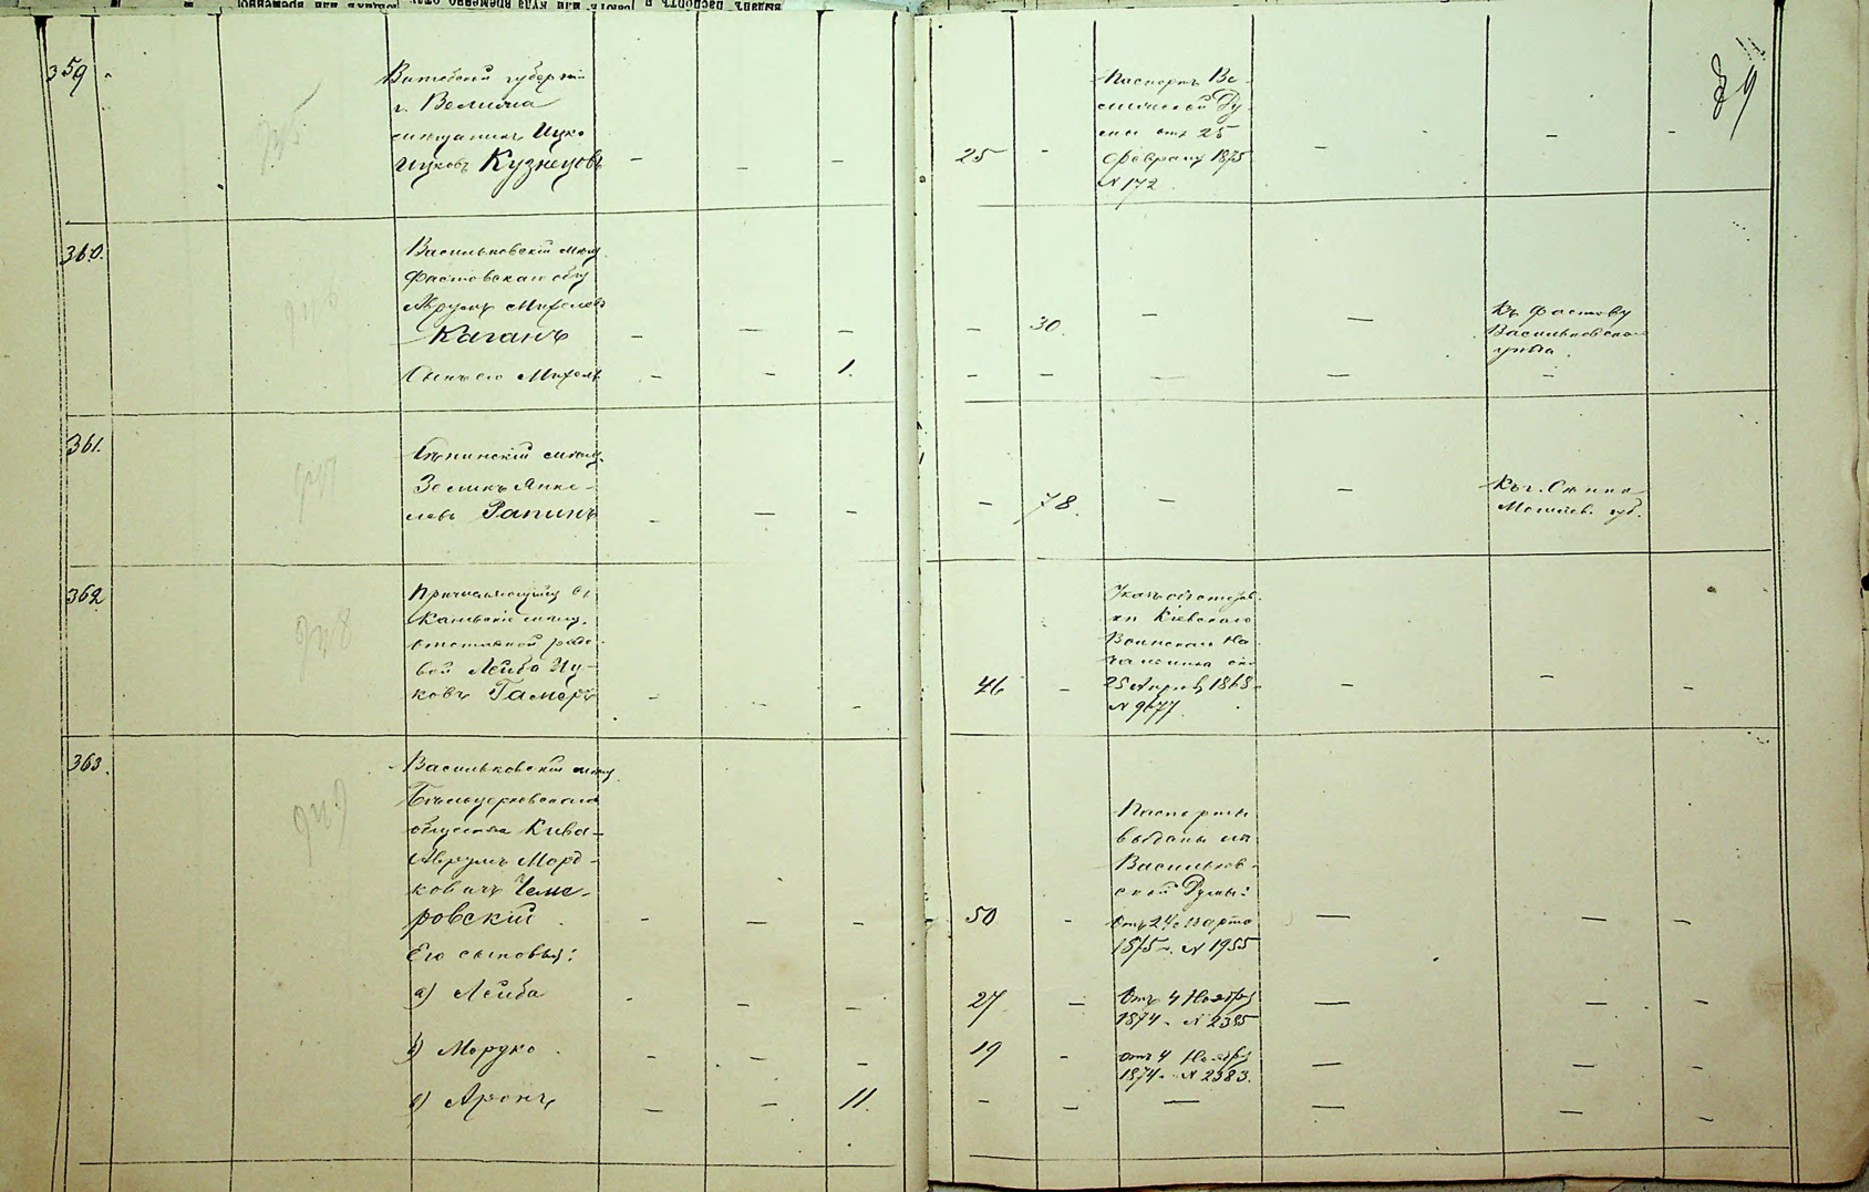 89
359
Витебской губернии
г. Велижа
мещанинъ Ицко
Ицковъ Кузнецовъ
25
Паспортъ Ве-
лижской Ду-
мы отъ 25
февраля 1875
N 172
360.
Васильковскій мещ.
Фастовскаго общ.
Аврумъ Михелевъ
Каганъ
30.
Къ Фастову
Васильковскаго
уезда.
Сынъ его Михель
1.
361.
Сѣнинскій мещ.
Зеликъ Янке-
левъ Рапинъ
78.
Въ г. Сенно
Могилев. губ.
362
отставной рядо-
вой Лейба Иц-
ковъ Гамеръ
46
Указъ объ отстав-
ке Кіевскаго
Воинскаго На-
чальника отъ
25 Апреля 1868
N 9677.
363.
Васильковскій мещ.
Бѣлоцерковскаго
общества Кива-
Аврумъ Морд-
ковичъ Чеме-
ровский
50
Паспорты
выданы изъ
Васильков-
ской Думы:
отъ 24 Марта
1875 г. N 1955
Его сыновья:
а) Лейба
27
отъ 4 Ноября
1874 г. N 2385
б) Мордко
19
отъ 4 Ноября
1874 г. N 2383.
в) Аронъ
11.